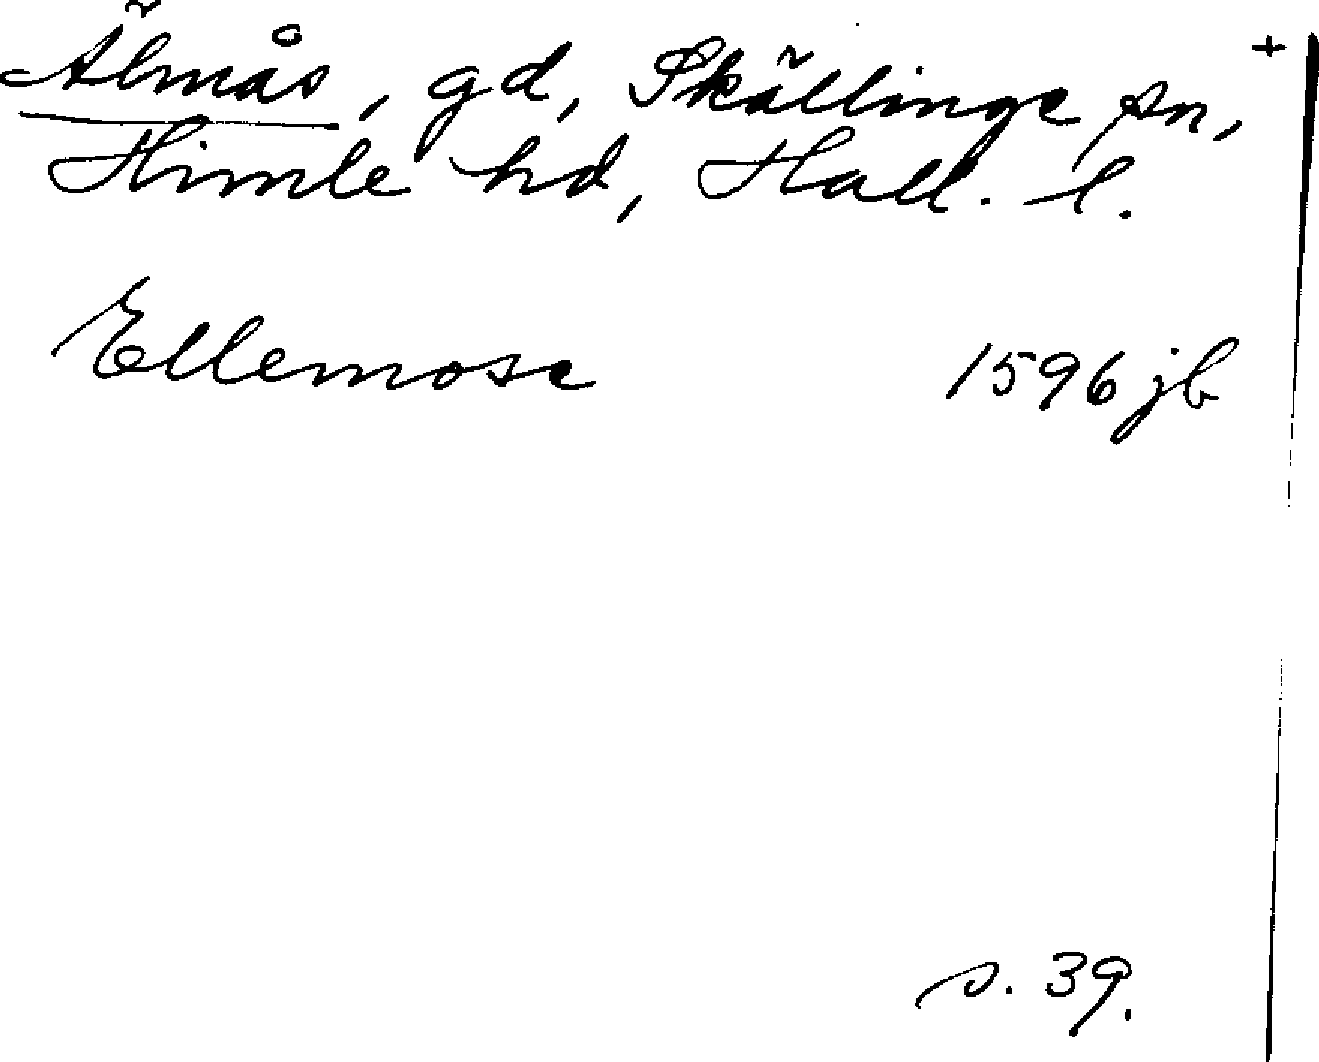 Älmås, gd, Skällinge sn, +
Himle hd, Hall. l.
Ellemose 1596 jb
s. 39.